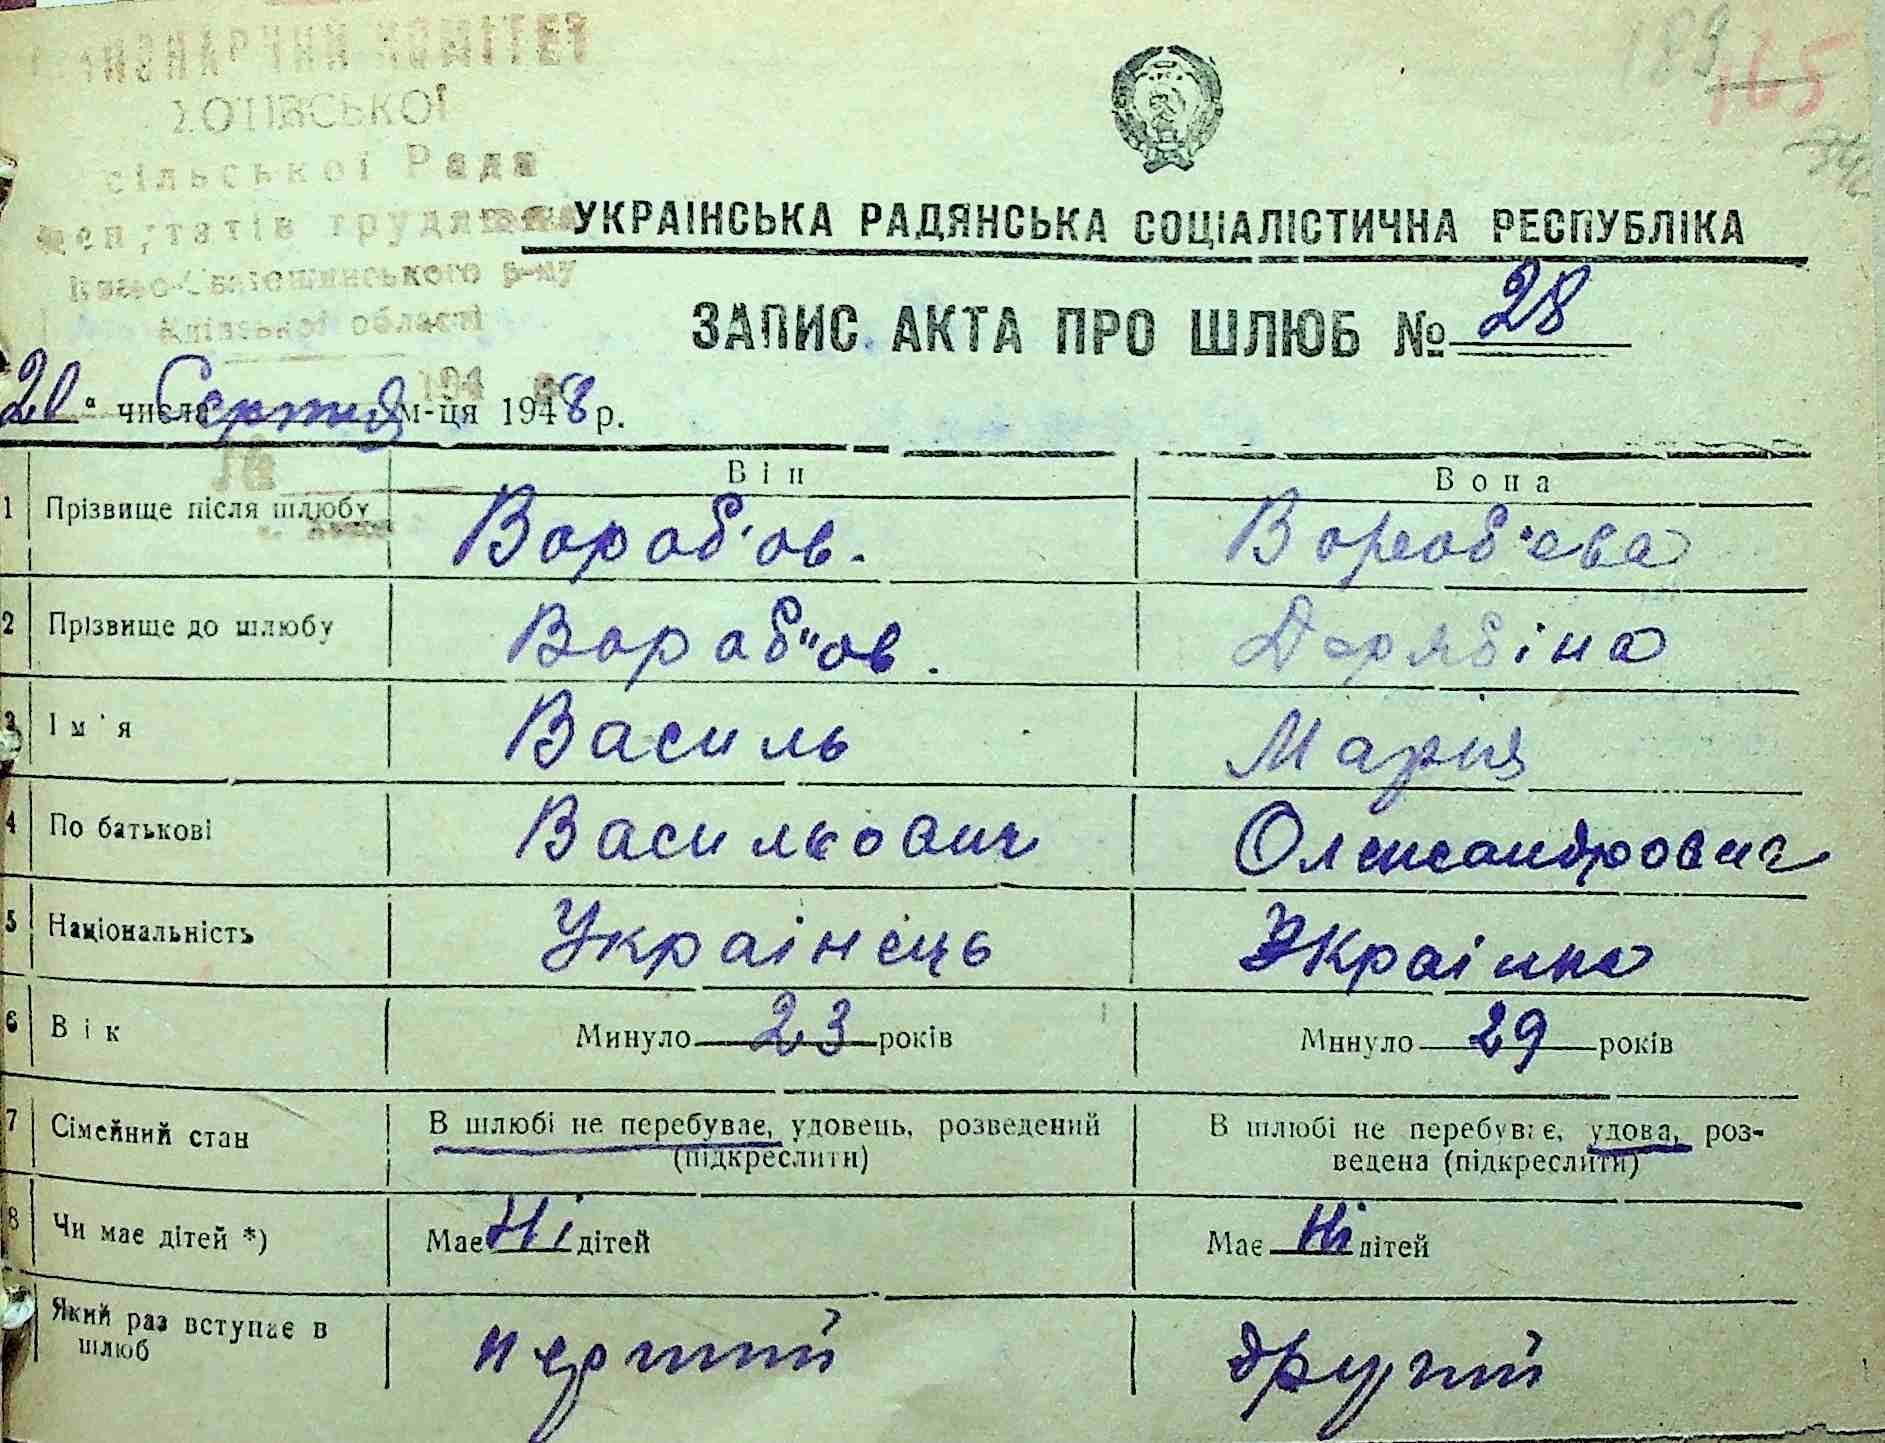 КОМІТЕТ
сільської Рада
Києво-Святошинського р-ну
Київської області
189 165
УКРАЇНСЬКА РАДЯНСЬКА СОЦІАЛІСТИЧНА РЕСПУБЛІКА
ЗАПИС АКТА ПРО ШЛЮБ № 28
20 " числа Серпня м-ця 1948 р.
Він Вона
1 Прізвище після шлюбу Вороб'ов. Вороб'ева
2 Прізвище до шлюбу Вороб"ов. Дерябіна
3 Ім'я Василь Марія
4 По батькові Васильович Олександрович
5 Національність Украінець Украінка
6 Вік Минуло 23 років Минуло 29 років
7 Сімейний стан В шлюбі не перебуває, удовець, розведений (підкреслити) В шлюбі не перебуває, удова, роз-
ведена (підкреслити)
8 Чи має дітей *) Має Ні дітей Має Ні дітей
Який раз вступає в шлюб перший другий